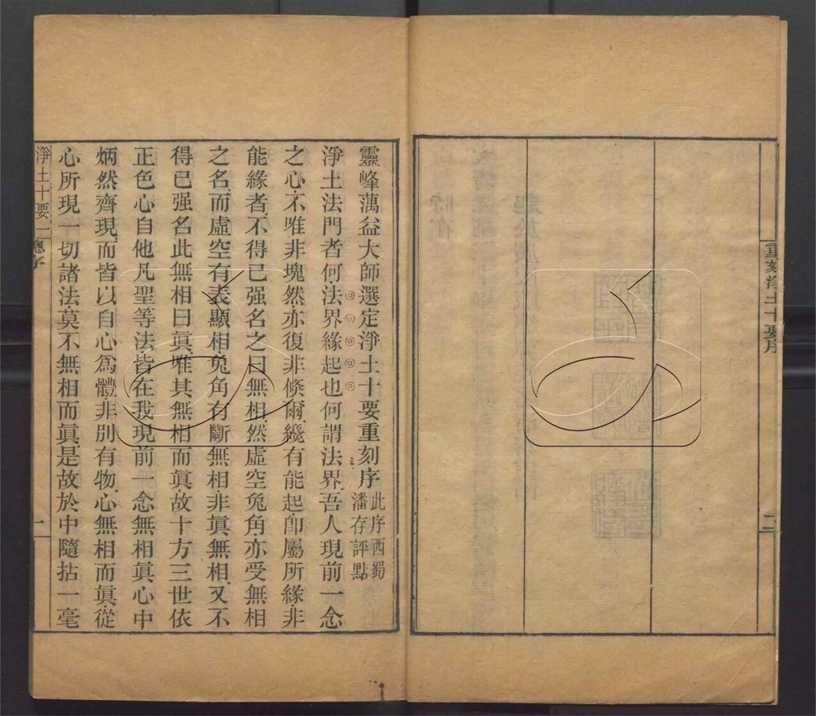 重刻淨土十要序
二
靈峰蕅益大師選定淨土十要重刻序 此序西蜀潘存評點
淨土法門者何法界緣起也何謂法界吾人現前一念
之心不唯非塊然亦復非倏爾纔有能起卽屬所緣非
能緣者不得已强名之曰無相然虛空兔角亦受無相
之名而虛空有表顯相兔角有斷無相非眞無相又不
得已强名此無相曰眞唯其無相而眞故十方三世依
正色心自他凡聖等法皆在我現前一念無相眞心中
炳然齊現而皆以自心爲體非別有物心無相而眞從
心所現一切諸法莫不無相而眞是故於中隨拈一毫
淨土十要一 總序
一